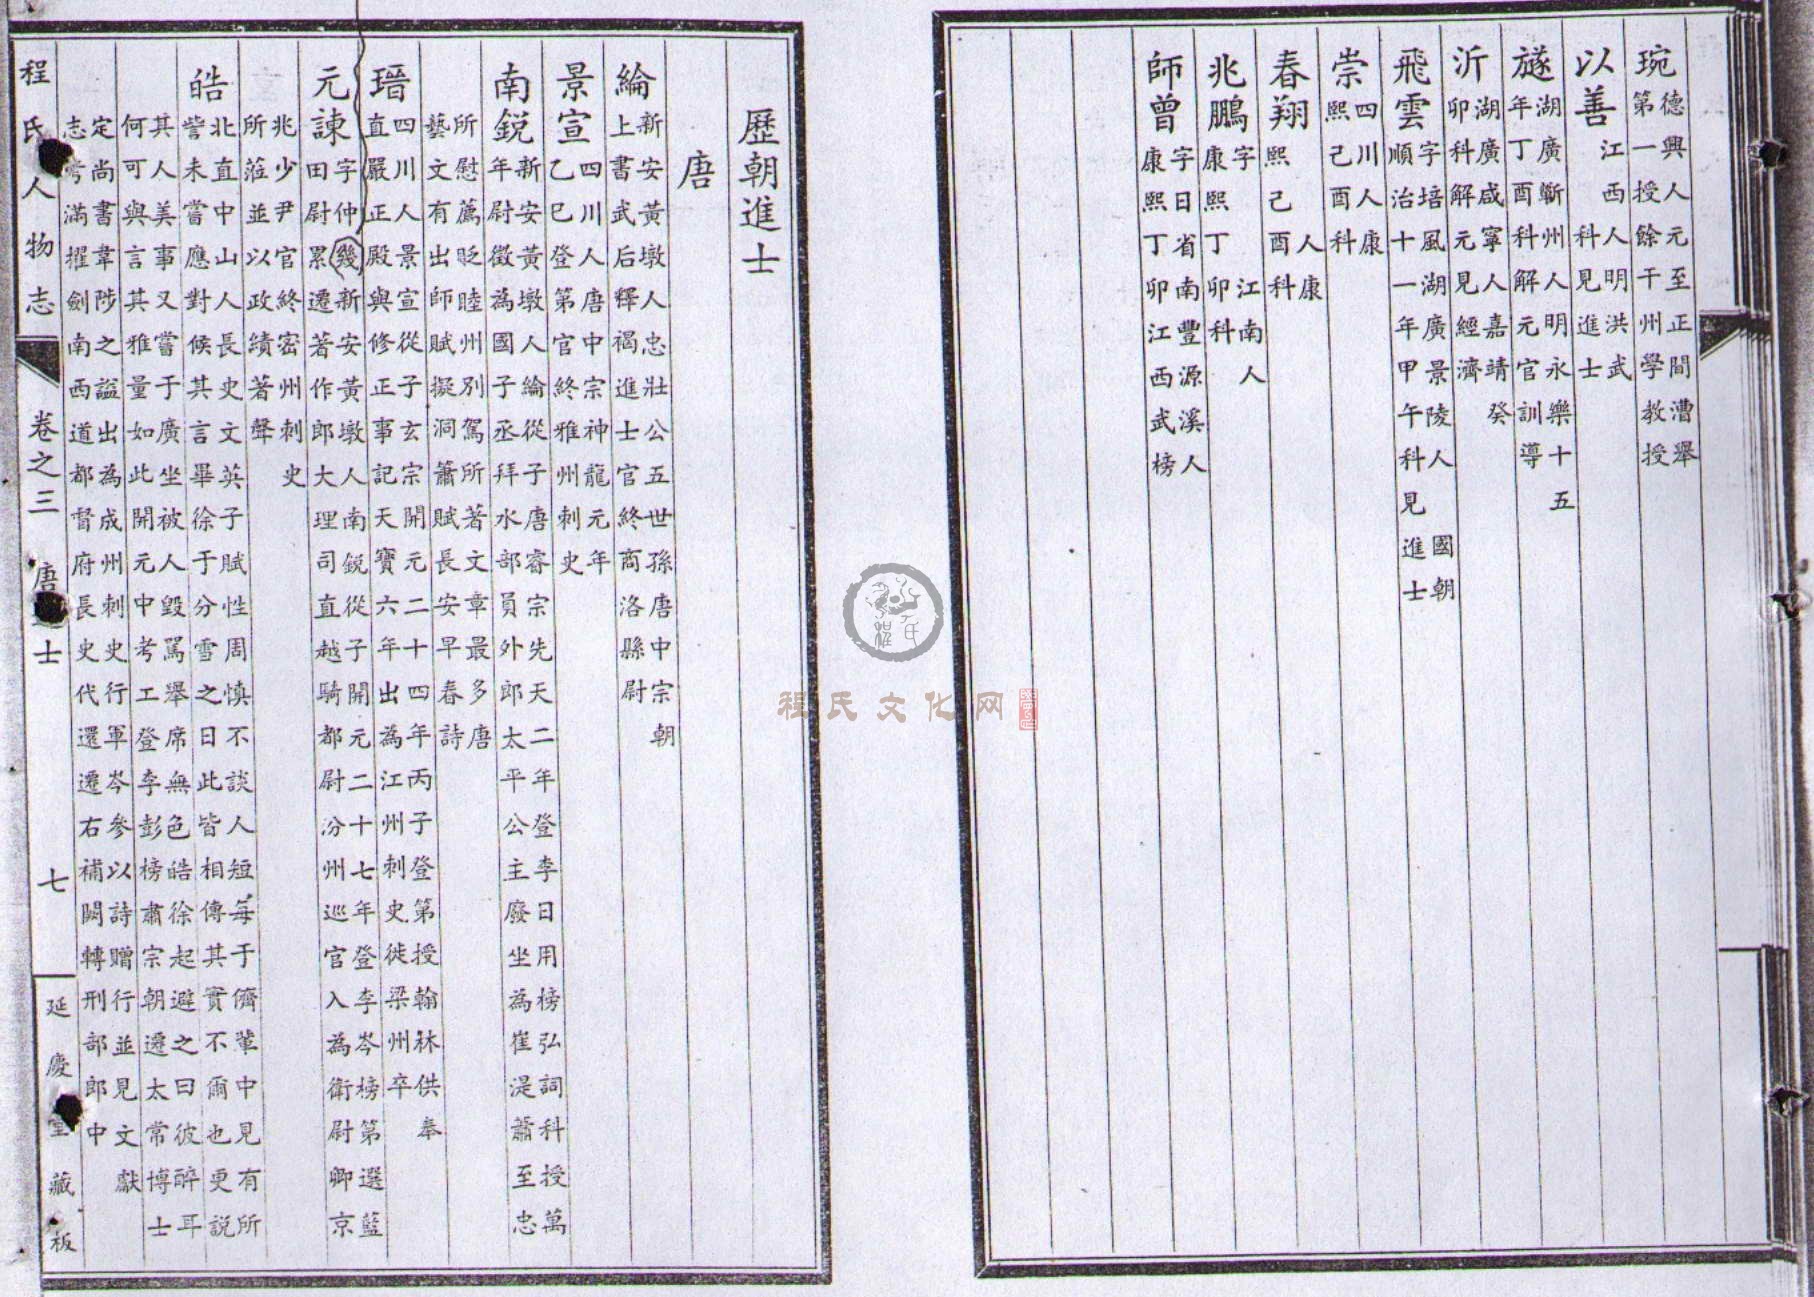 琬德興人元至正間漕舉
第一授餘干州學教授
以善江西人明洪武
科見進士
旞湖廣蘄州人明永樂十五
年丁酉科解元官訓導
沂湖廣咸寧人嘉靖癸
卯科解元見經濟
飛雲字培風湖廣景陵人國朝
順治十一年甲午科見進士
崇四川人康
熙己酉科
春翔人康
熙己酉科
兆鵬字江南人
康熙丁卯科
師曾字日省南豐源溪人
康熙丁卯江西武榜
歷朝進士
唐
綸新安黃墩人忠壯公五世孫唐中宗朝
上書武后釋褐進士官終商洛縣尉
景宣四川人唐中宗神龍元年
乙巳登第官終雅州刺史
南銳新安黃墩人綸從子唐睿宗先天二年登李日用榜弘詞科授萬
年尉徵為國子丞拜水部員外郎太平公主廢坐為崔湜蕭至忠
所慰薦貶睦州別駕所著文章最多唐
藝文有出師賦擬洞簫賦長安早春詩
瑨四川人景宣從子玄宗開元二十四年丙子登第授翰林供奉
直嚴正殿與修正事記天寶六年出為江州刺史徙梁州卒
元諫字仲幾新安黃墩人南銳從子開元二十七年登李岑榜第選藍
田尉累遷著作郎大理司直越騎都尉汾州巡官入為衛尉卿京
兆少尹官終密州刺史
所蒞並以政績著聲
皓北直中山人長史文英子賦性周慎不談人短每于儕輩中見有所
訾未嘗應對候其言畢徐于分雪之曰此皆相傳其實不爾也更說
其人美事又嘗于廣坐被人毀罵舉席無色皓徐起避之曰彼醉耳
何可與言其雅量如此開元中考工登李彭榜肅宗朝遷太常博士
定尚書韋陟之謚出為成州刺史行軍岑參以詩贈行並見文獻
志考滿擢劍南西道都督府長史代還遷右補闕轉刑部郎中
程氏人物志
卷之三
唐
士
七
延慶堂藏板
程氏文化网